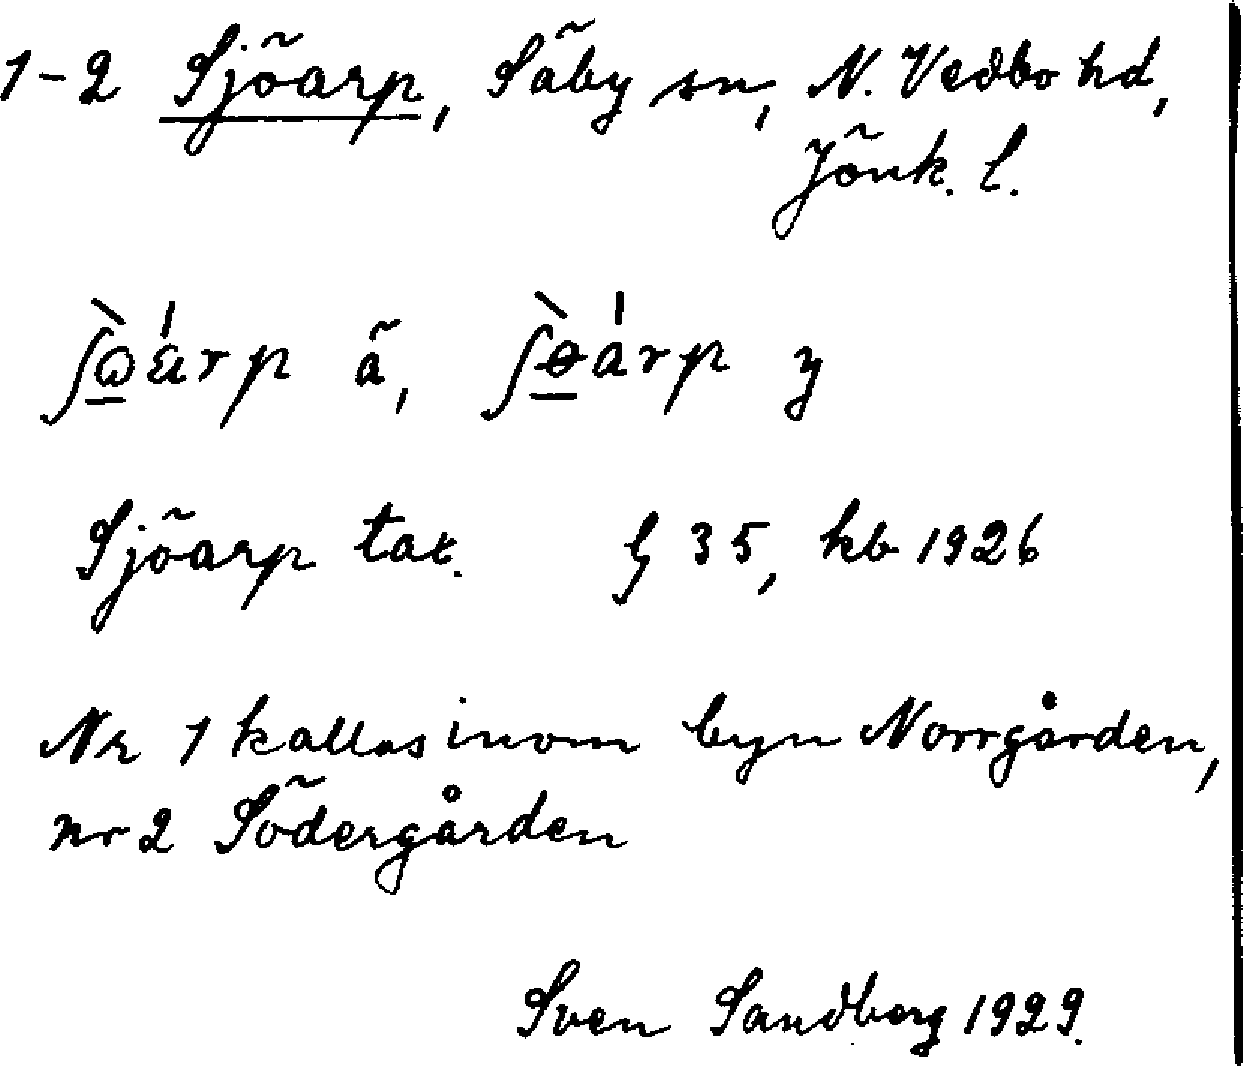 1-2 Sjöarp, Säby sn, N. Vedbo hd,
Jönk. l.
ä, y
Sjöarp tax. § 35, kb 1926
Nr 1 kallas inom byn Norrgården,
nr 2 Södergården
Sven Sandberg 1929.